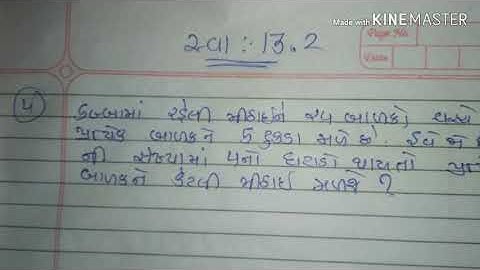 Made with KINEMASTER
સ્વા :- 13.2
Page No.
Date
૫ ડબ્બામાં રહેલી મીઠાઈને ૨૫ બાળકો વચ્ચે
પ્રત્યેક બાળકને 5 ટુકડા મળે છે. હવે જો
ની સંખ્યામાં ૫નો ઘટાડો થાયતો
બાળકને કેટલી મીઠાઈ મળશે ?